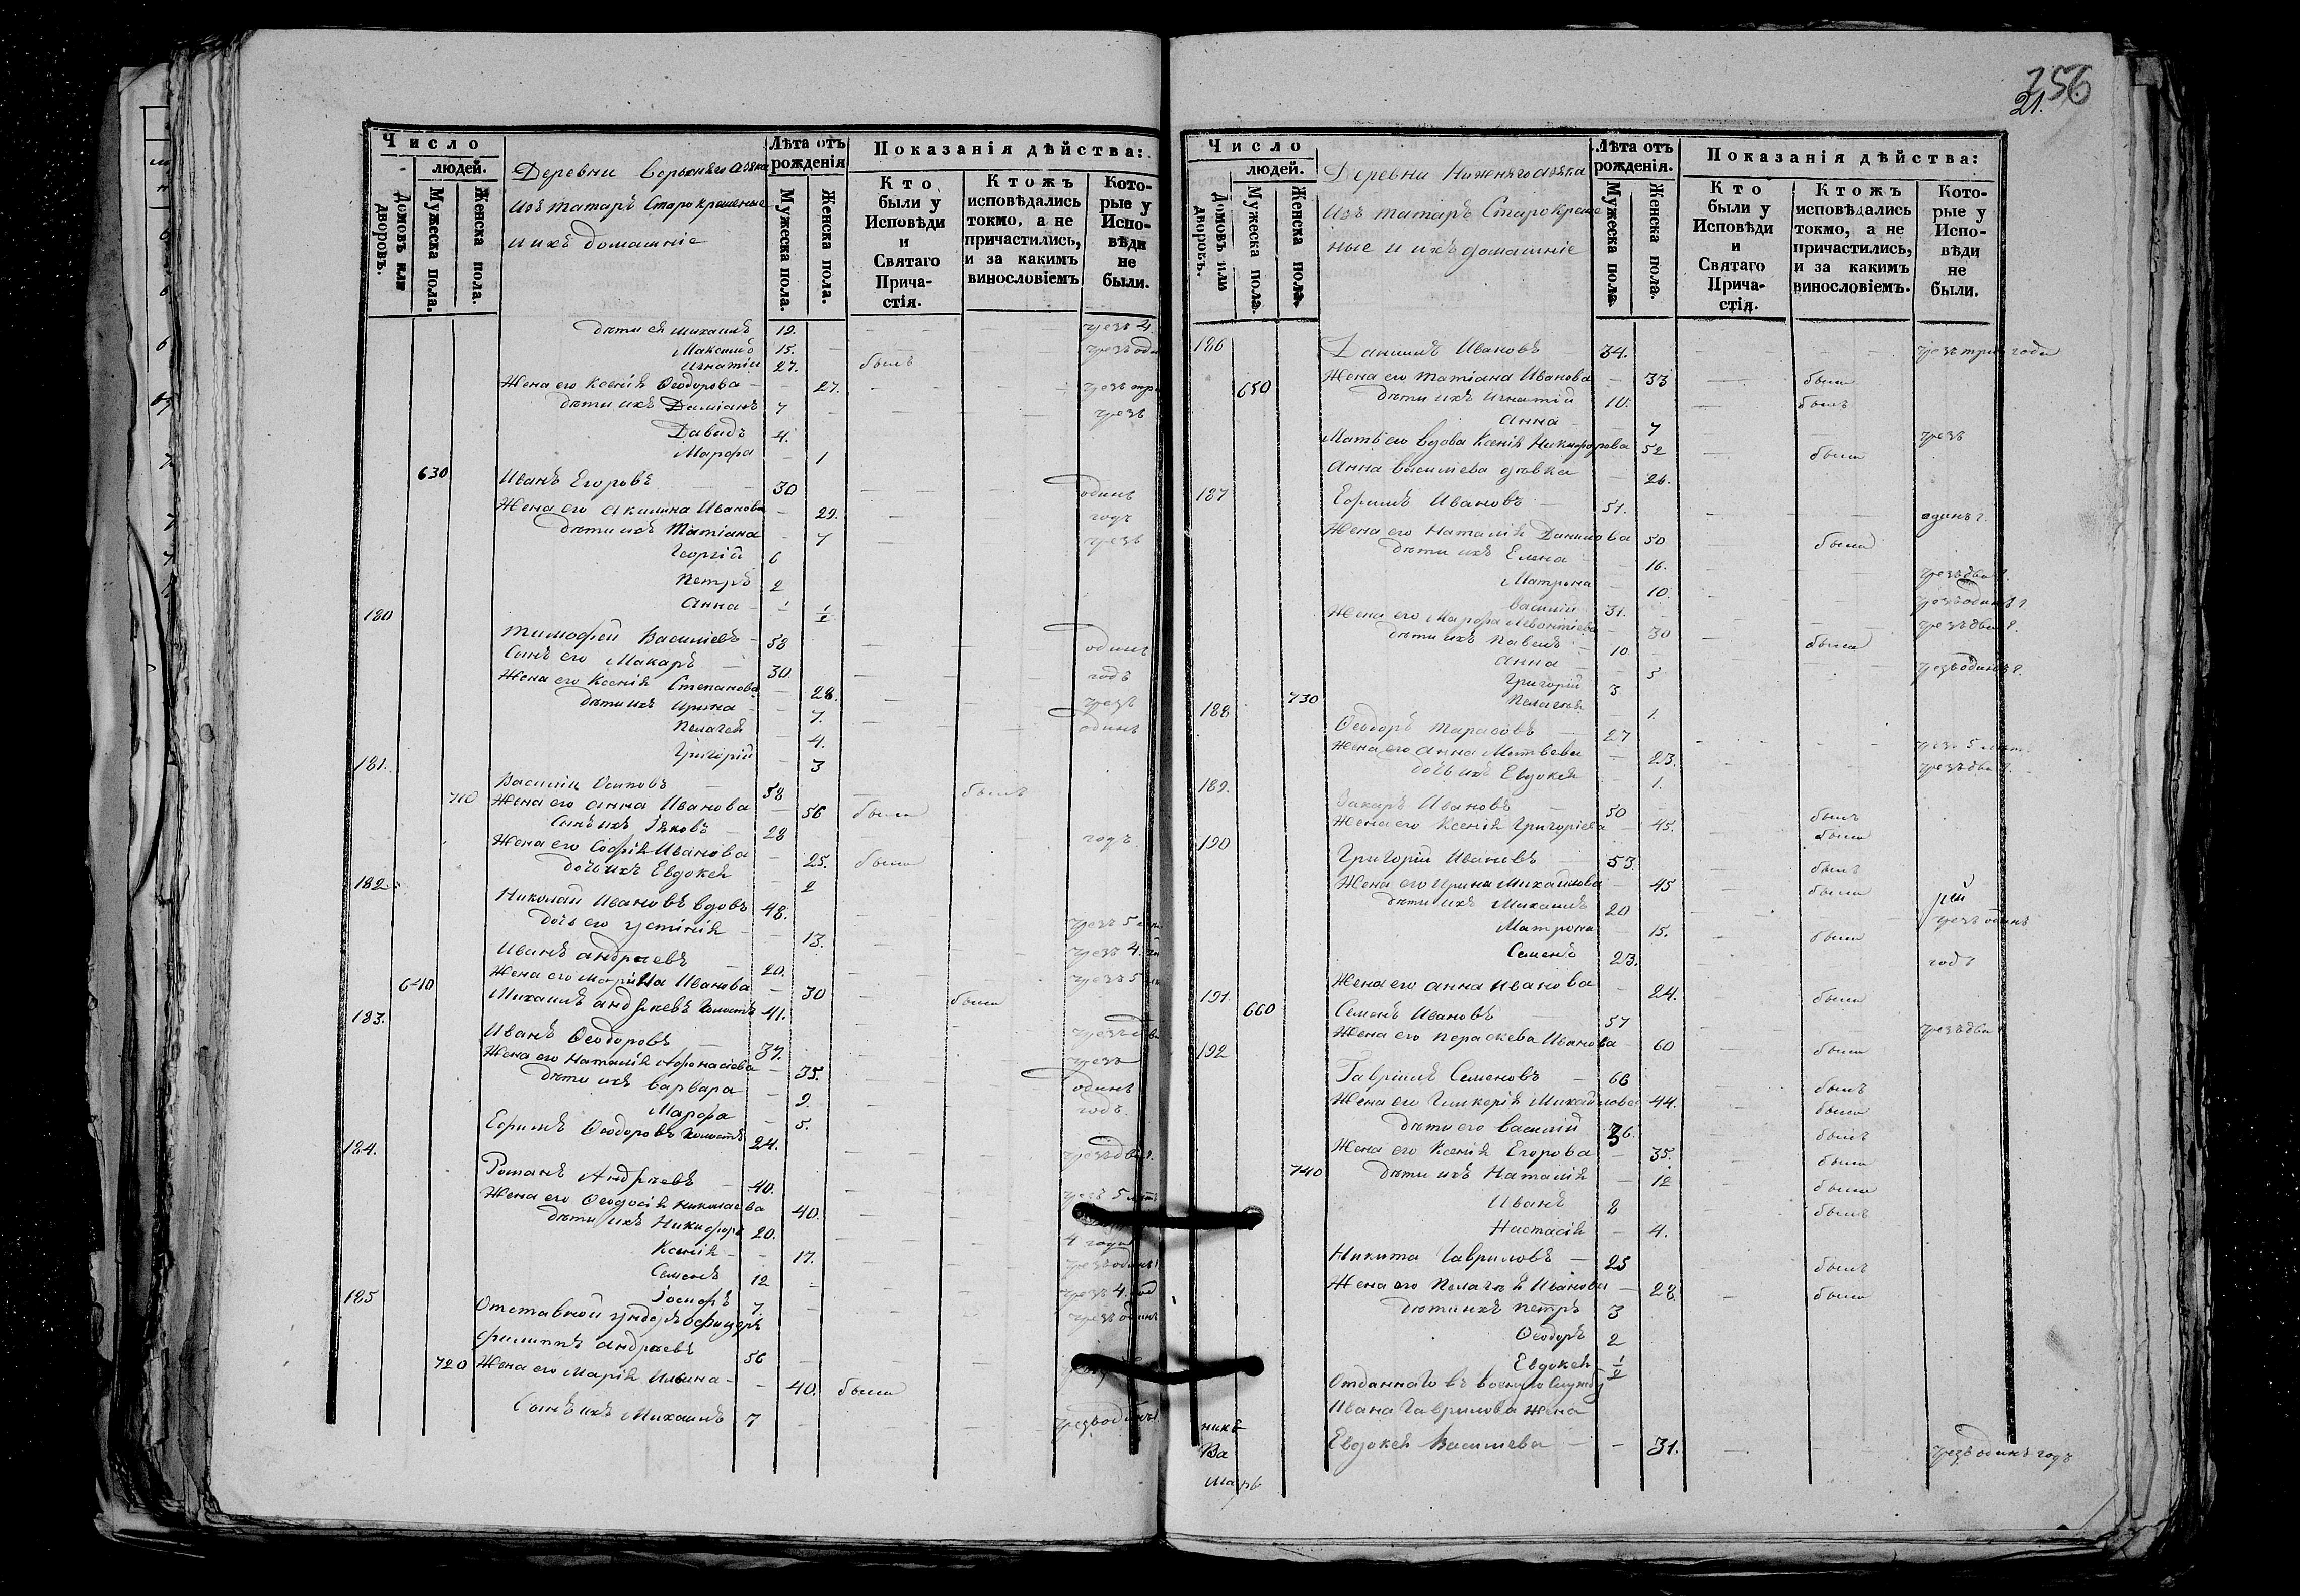 756
21.
Число
людей.
Домовъ или дворовъ.
Мужеска пола.
Женска пола.
Деревни Верхняго Азяка
изъ татаръ Старокрещеные
и ихъ домашніе
Лѣта отъ рожденія
Мужеска пола.
Женска пола.
Показанія дѣйства:
Кто были у Исповѣди и Святаго Причастія.
Ктожъ исповѣдались токмо, а не причастились, и за какимъ винословіемъ
Которые у Исповѣди не были.
дѣти ея Михаилъ 19. чрезъ 4
Максимъ 15. чрезъ оди
Игнатій 27. былъ
Жена его Ксенія Ѳеодорова 27. чрезъ три
дѣти ихъ Даміанъ 7 чрезъ
Давидъ 4.
Марфа 1
630 Иванъ Егоровъ 30 одинъ
Жена его Акилина Иванова 29. годъ
дѣти ихъ Татіана 7 чрезъ
Георгій 6
Петръ 2
Анна 1/2
180
Тимофей Василіевъ 58 одинъ
Сынъ его Макаръ 30 годъ
Жена его Ксенія Степанова 28. чрезъ
дѣти ихъ Ирина 7. одинъ
Пелагея 4.
Григорій 3
181.
Василій Осиповъ 58 былъ
710 Жена его Анна Иванова 56 была
Сынъ ихъ Яковъ 28 годъ
Жена его Софія Иванова 25. была
дочь ихъ Евдокея 2
182.
Николай Ивановъ вдовъ 48. чрезъ 5
дочь его Устинія 13. чрезъ 4.
Иванъ Андреевъ 20. чрезъ 5
640 Жена его Марина Иванова 30 была
Михаилъ Андреевъ холостъ 41. чрезъ два
183.
Иванъ Ѳеодоровъ 37. чрезъ
Жена его Наталія Афонасіева 35. одинъ
дѣти ихъ Варвара 9. годъ.
Марфа 5.
Ефимъ Ѳеодоровъ холостъ 24. чрезъ два г.
184.
Романъ Андреевъ 40. чрезъ 5 лѣтъ
Жена его Ѳеодосія Николаева 40.
дѣти ихъ Никифоръ 20. 4 года
Ксенія 17. чрезъ одинъ
Семенъ 12 чрезъ 4 год
Іосифъ 7. чрезъ одинъ
185
Отставной ундеръ офицеръ
Филиппъ Андреевъ 56
720 Жена его Марія Ильина 40. была
Сынъ ихъ Михаилъ 7 чрезъ одинъ
Число
людей.
Домовъ или дворовъ.
Мужеска пола.
Женска пола.
Деревни Нижняго Азяка
Изъ татаръ Старокреще
ные и ихъ домашніе
Лѣта отъ рожденія.
Мужеска пола.
Женска пола.
Показанія дѣйства:
Кто были у Исповѣди и Святаго Причастія.
Ктожъ исповѣдались токмо, а не причастились, и за какимъ винословіемъ.
Которые у Исповѣди не были.
186 Даниилъ Ивановъ 34. чрезъ три года
650 Жена его Татіана Иванова 33 была
дѣти ихъ Игнатій 10. былъ
Анна 7 чрезъ
Мать его вдова Ксенія Никифорова 52 была
Анна Василіева девка 26.
187 Ефимъ Ивановъ 51. одинъ г.
Жена его Наталія Данилова 50 была
дѣти ихъ Елена 16. чрезъ два г.
Матрона 10. чрезъ одинъ г.
Василій 31. чрезъ два г.
Жена его Марфа Леонтіева 30 была
дѣти ихъ Павелъ 10 чрезъ одинъ г.
Анна 5
Григорій 3
730 Пелагея 1.
188
Ѳеодоръ Тарасовъ 27 чрезъ 5 лѣтъ
Жена его Анна Матвеева 23. чрезъ два г.
дочь ихъ Евдокея 1.
189.
Захаръ Ивановъ 50 былъ
Жена его Ксенія Григоріева 45. была
190
Григорій Ивановъ 53. былъ
Жена его Ирина Михайлова 45 была
дѣти ихъ Михаилъ 20 чрезъ одинъ
Матрона 15. была
Семенъ 23. годъ
Жена его Анна Иванова 24. была
191. 660 Семенъ Ивановъ 57 чрезъ два
Жена его Параскева Иванова 60 была
192
Гавріилъ Семеновъ 66 былъ
Жена его Гликерія Михайлова 44. была
дѣти его Василій 36. былъ
Жена его Ксенія Егорова 35. была
740 дѣти ихъ Наталія 12 была
Иванъ 8 былъ
Настасія 4.
Никита Гавриловъ 25 былъ
Жена его Пелагея Иванова 28. была
дѣти ихъ Петръ 3
Ѳеодоръ 2
Евдокея 1/2
Отданнаго въ военную службу
Ивана Гаврилова жена
Евдокея Василіева 31. чрезъ одинъ годъ